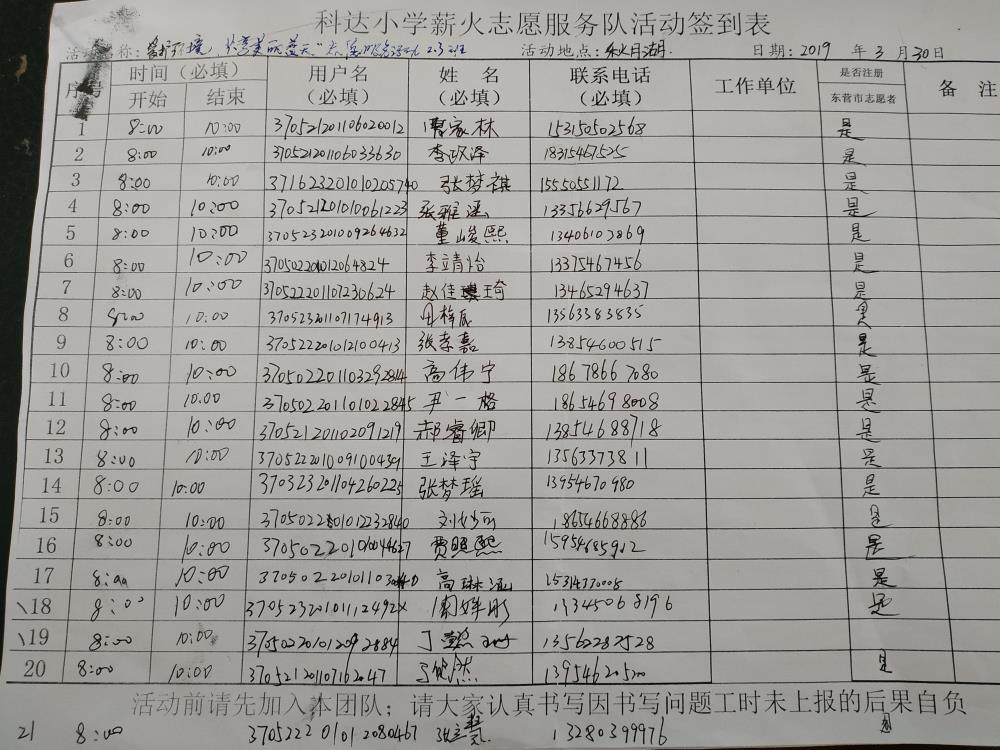 科达小学薪火志愿服务队活动签到表
活动名称： 环境 美丽蓝天" 活动地点：秋月湖 日期：2019 年 3 月 30 日
序号 时间（必填） 用户名（必填） 姓 名（必填） 联系电话（必填） 工作单位 是否注册东营市志愿者 备 注
开始 结束
1 8:00 10:00 370521201106020012 曹家林 153150502568 是
2 8:00 10:00 370521201106033630 李政泽 18315467525 是
3 8:00 10:00 371623201010205740 张梦祺 15550551172 是
4 8:00 10:00 370521201010061223 张雅涵 13356629567 是
5 8:00 10:00 370523201009264632 董峻熙 13406102869 是
6 8:00 10:00 370502201012064824 李靖怡 13375467456 是
7 8:00 10:00 370522201107230624 赵佳琦 13465294637 是
8 8:00 10:00 370523201107174913 13563383835 是
9 8:00 10:00 370522201012100413 张孝嘉 13854600515 是
10 8:00 10:00 370502201103292814 高伟宁 18678667080 是
11 8:00 10:00 370502201101022845 尹一格 18654698008 是
12 8:00 10:00 370521201102091219 郝睿卿 13854688718 是
13 8:00 10:00 王泽宇 13563373811 是
14 8:00 10:00 370323201104260225 张梦瑶 13954670980 是
15 8:00 10:00 370502201012232840 18654668886 是
16 8:00 10:00 贾熙 15954685912 是
17 8:00 10:00 高琳涵 15314330008 是
18 8:00 10:00 37052320101112492X 13345068196 是
19 8:00 10:00 370502201012092884 丁 13562282528
20 8:00 10:00 370521201107162047 然 13954620520 是
活动前请先加入本团队；请大家认真书写因书写问题工时未上报的后果自负
21 8:00 370522201012080467 张 13280399976 是